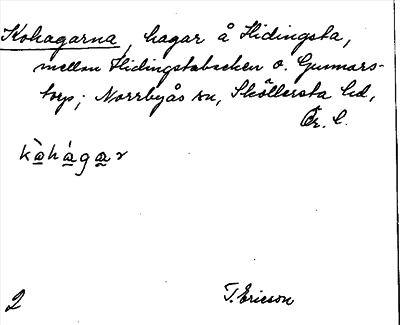 Kohagarna, hagar å Hidingsta,
mellan Hidingstabacken o. Gunnars-
torp; Norrbyås sn, Sköllersta hd,
Ör. l.
kàhágar
2 T. Ericson